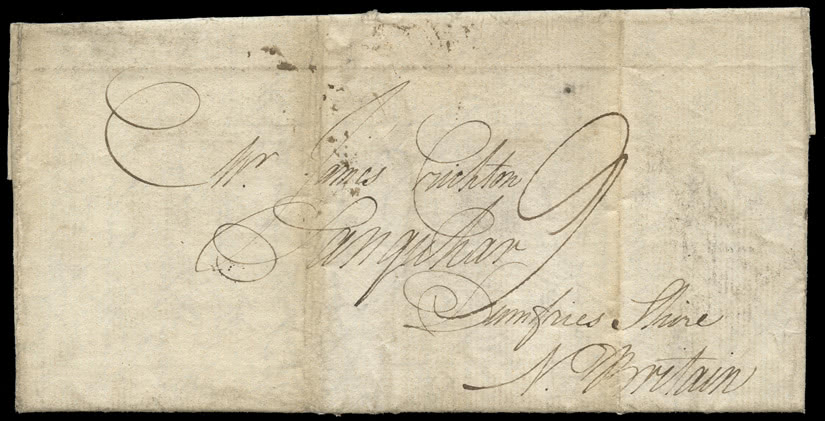 Mr. James Crichton
9
Sanquhar
Dumfries Shire
N. Britain